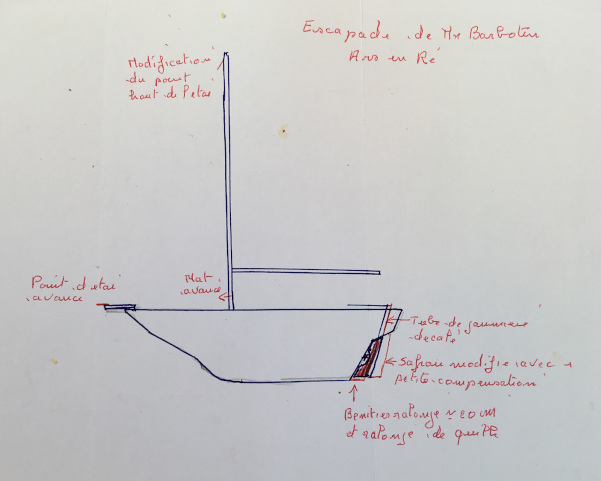 Escapade de Mr Barboten
Ars en Ré
Modification
du point
haut de l'etai
Point d'etai
avancé
Mat
avancé
Tube de jaumiere
decalé
Safran modifié avec
petite compensation
ralongé ≈ 20 cM
et ralonge de quille